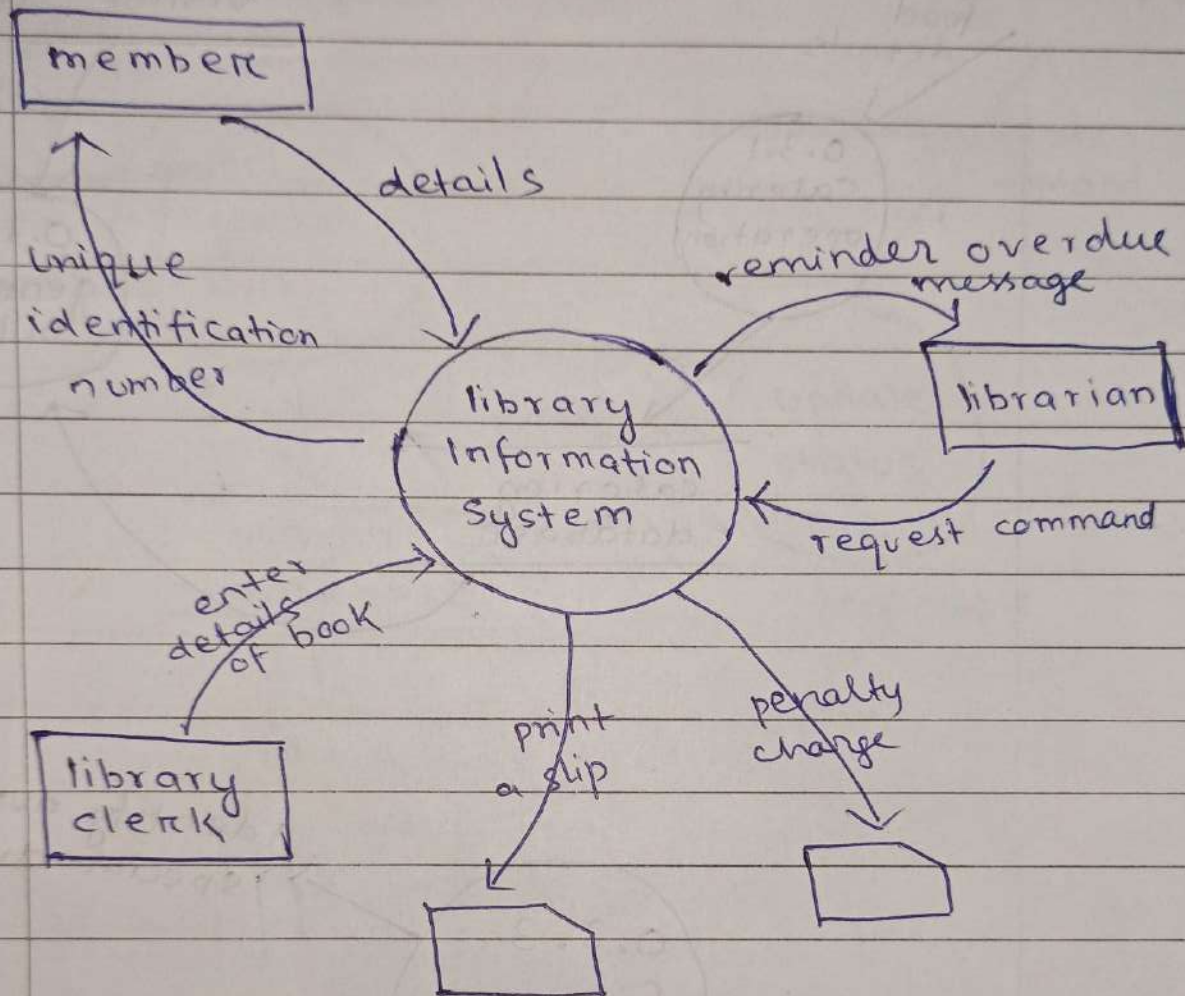 member
details
unique
identification
number
reminder overdue
message
librarian
library
Information
System
request command
enter
details
of book
library
clerk
print
a slip
penalty
charge
0.3.1